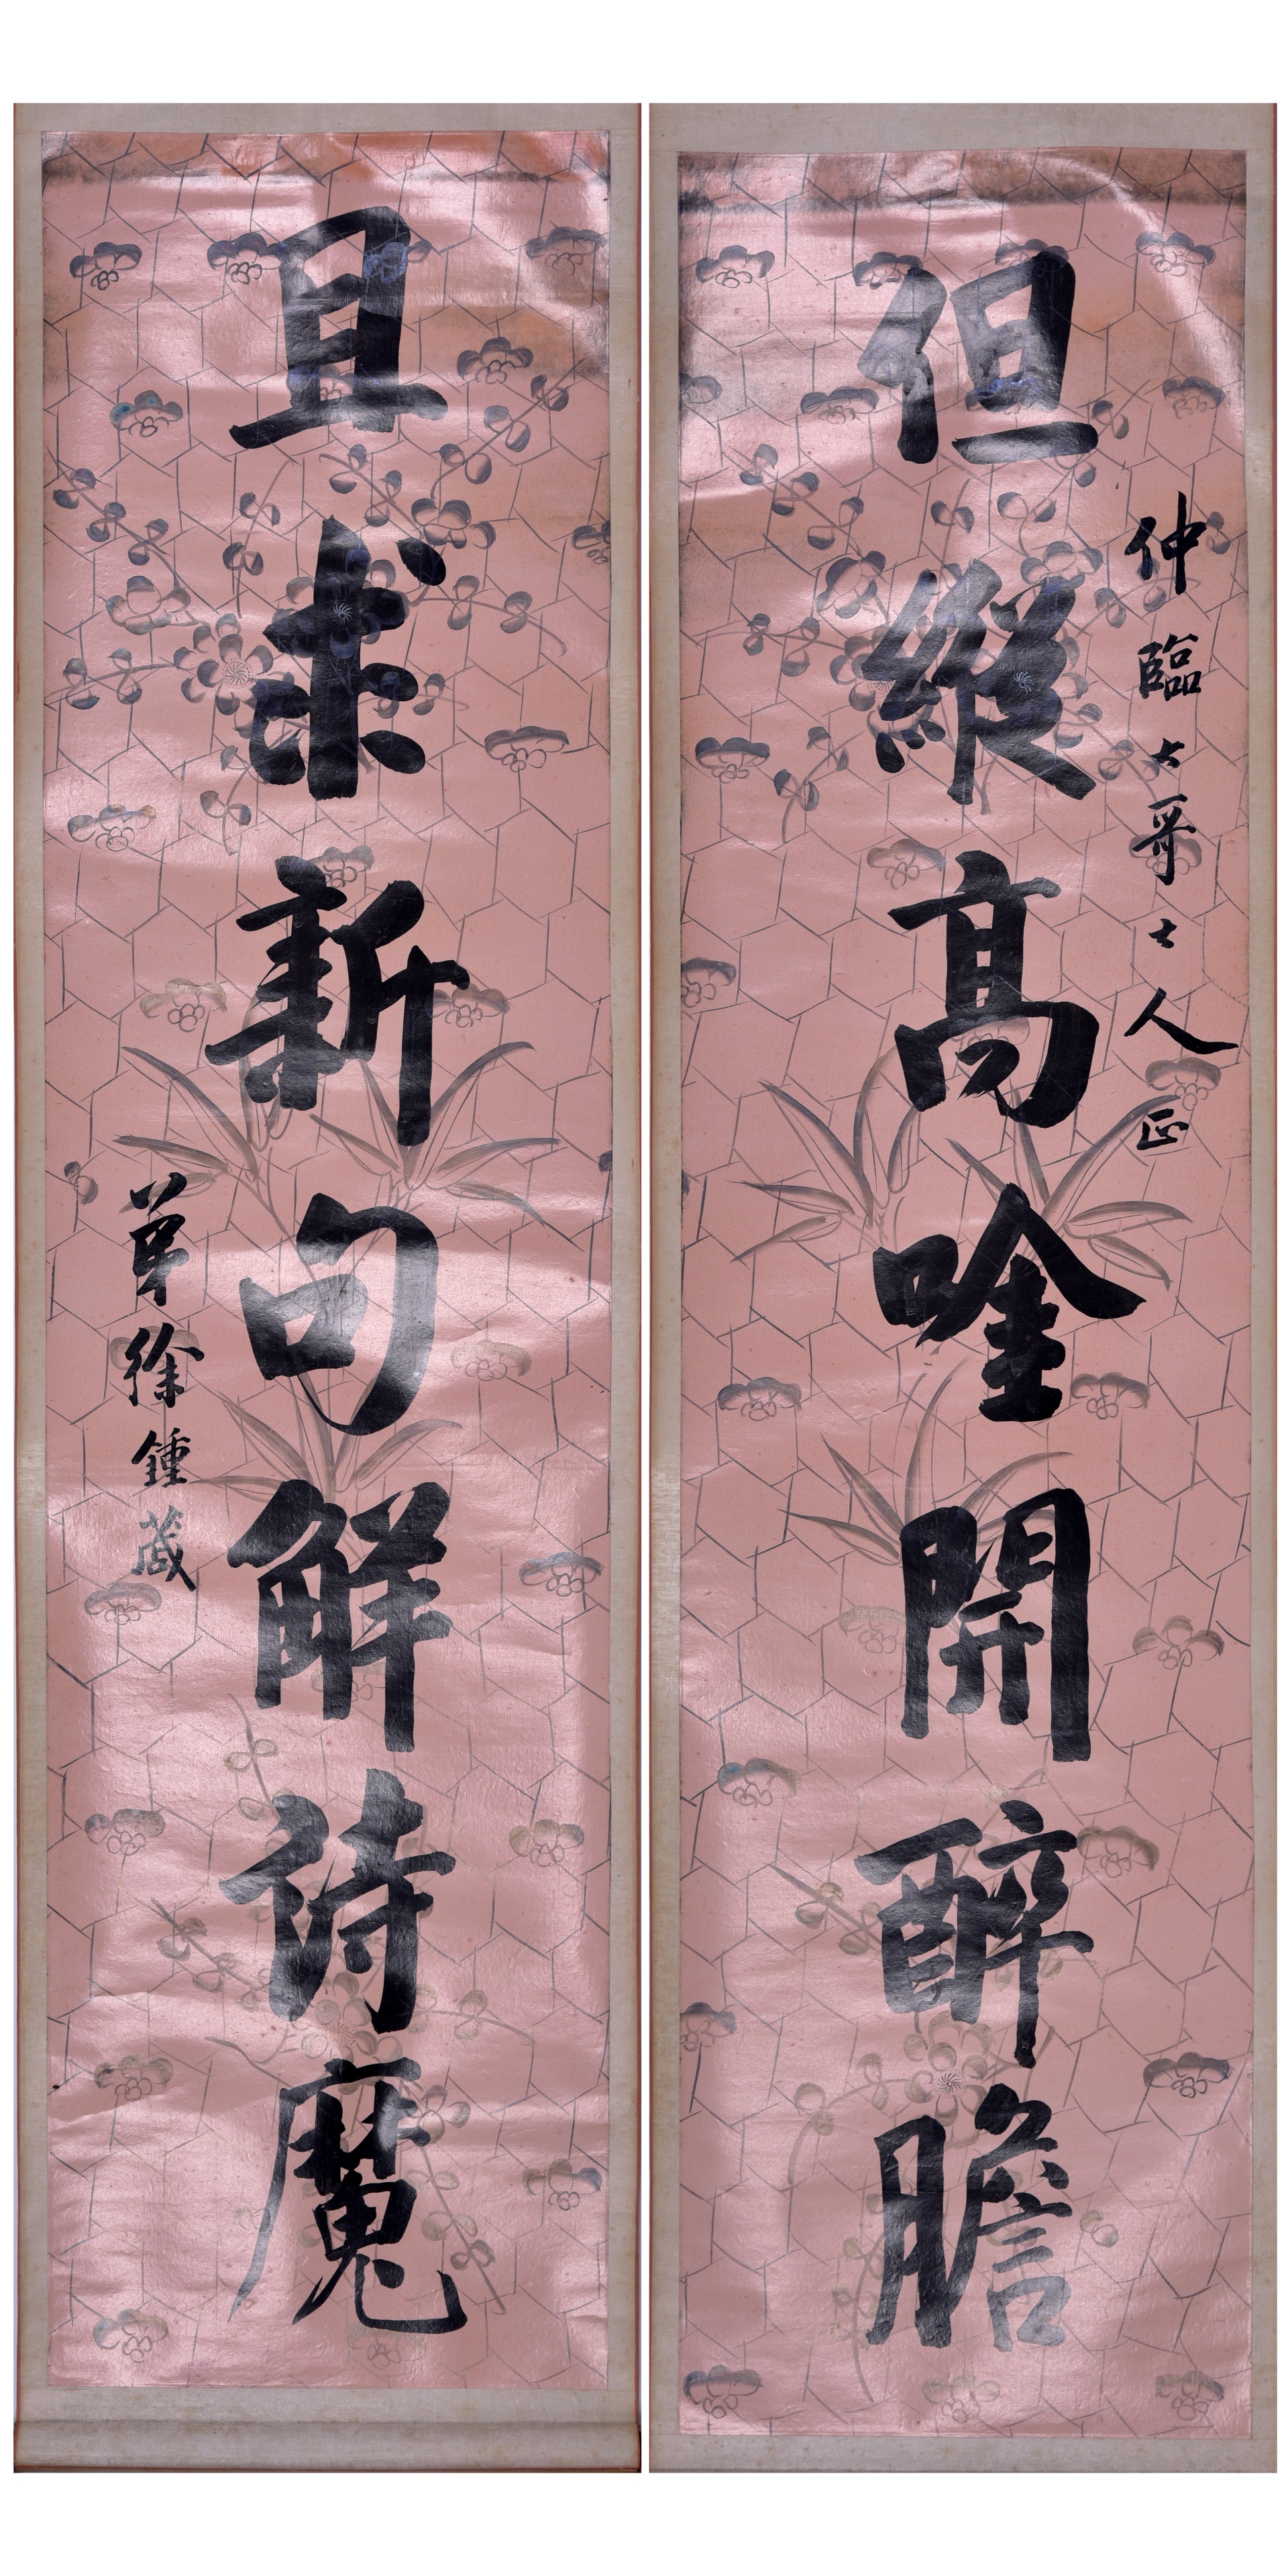 仲臨大哥大人正
但縱高唫開醉膽
且求新句解詩魔
弟徐鍾蕆